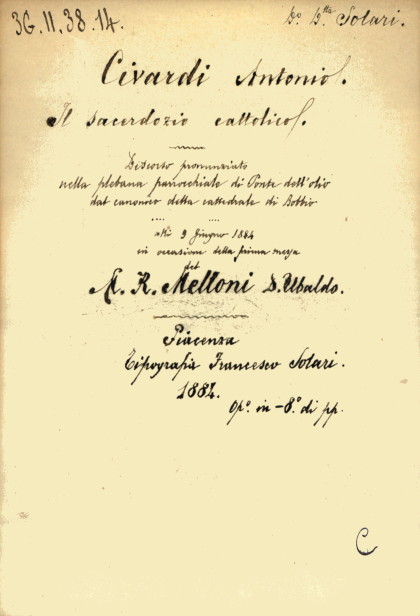 3G.II.38.14.
D.º D.tta Solari.
Civardi Antonio.
Il sacerdozio cattolico.
Discorso pronunziato
nella plebana parrocchiale di Ponte dell'olio
dal canonico della cattedrale di Bobbio
.... ....
alli 9 Giugno 1884
in occasione della prima messa
del
M. R. Melloni D. Ubaldo.
Piacenza
Tipografia Francesco Solari.
1884.
Op.º in-8.º di pp.
C